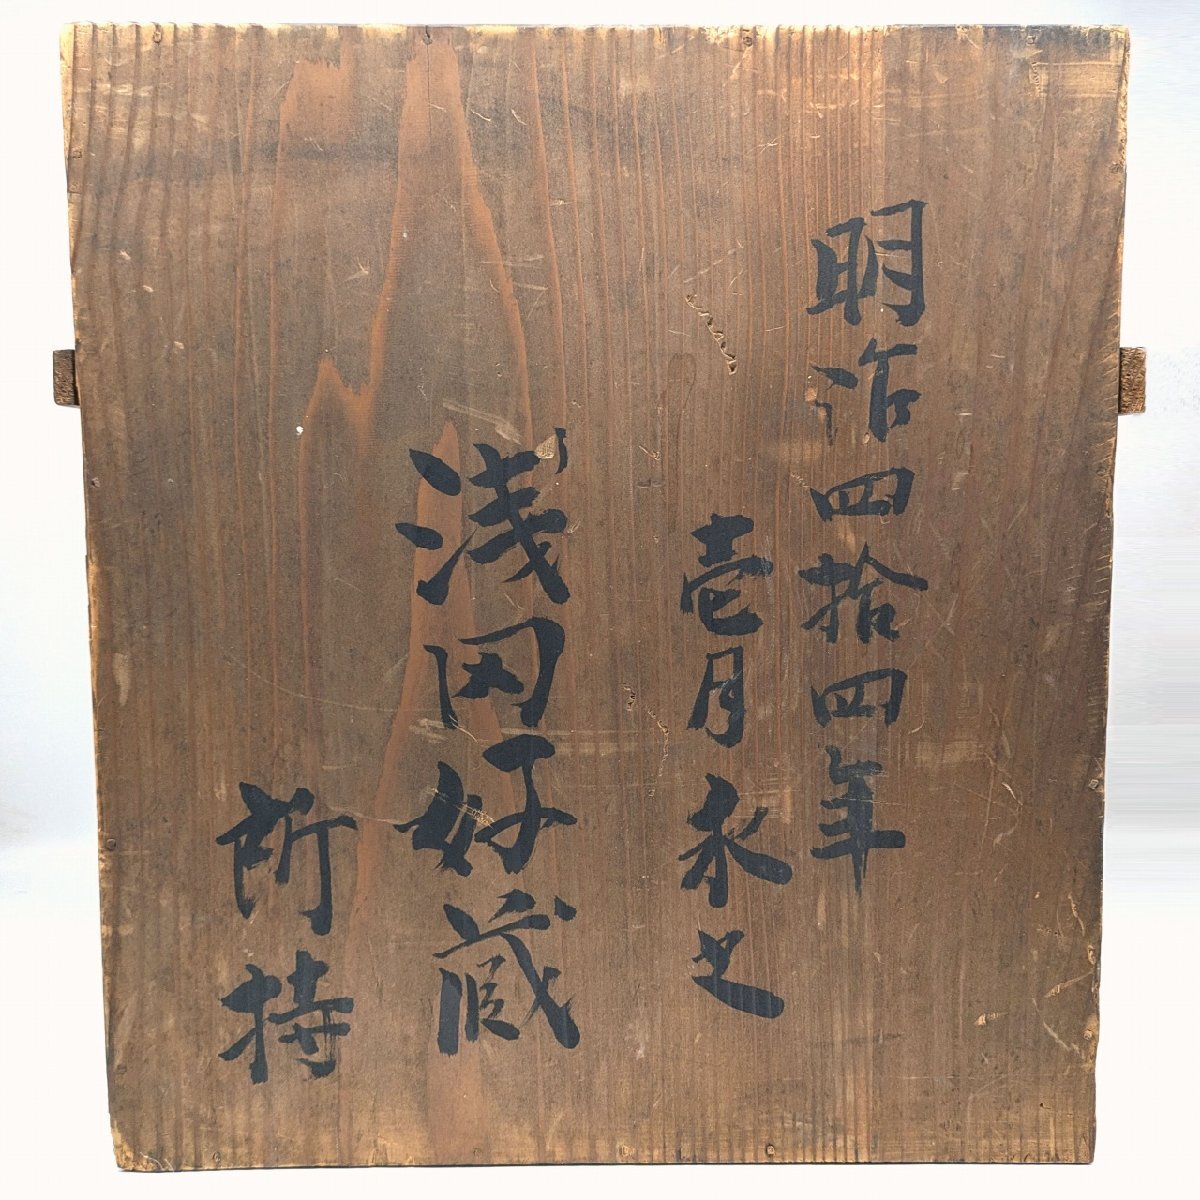 明治四拾四年
壱月求之
浅田好蔵
所持